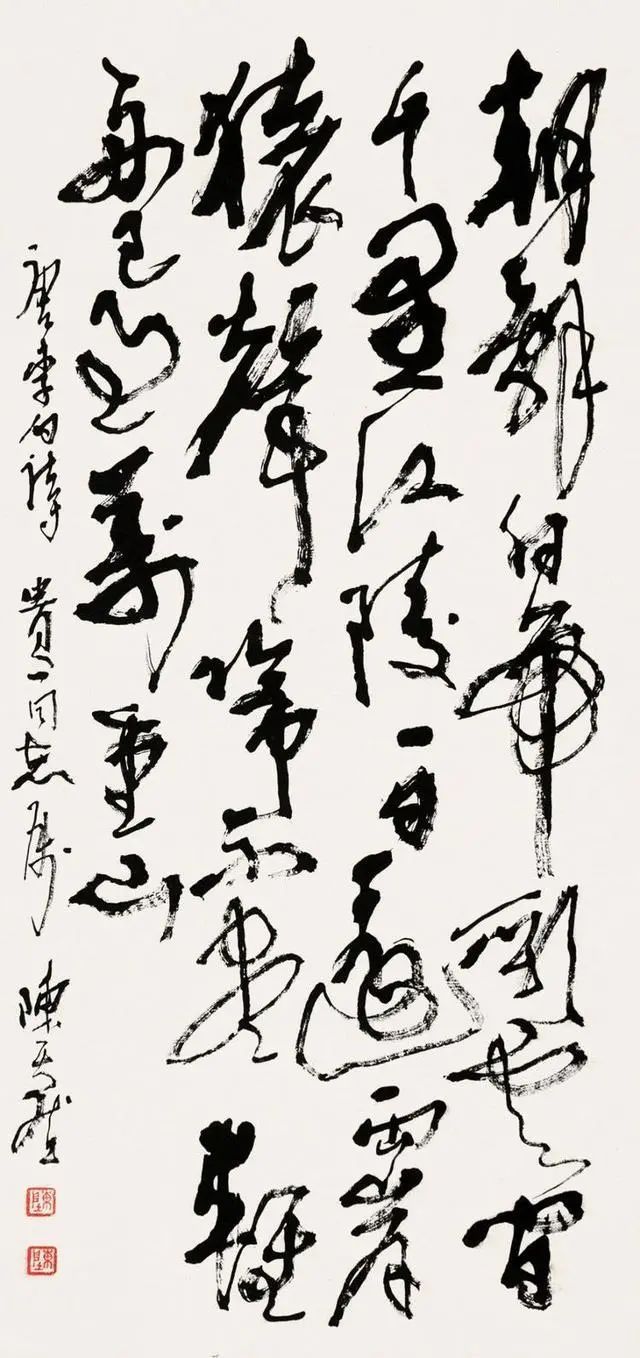 朝辭白帝彩雲間
千里江陵一日還兩岸
猿聲啼不盡輕
舟已過萬重山
唐李白詩 貴一同志属 陳天然